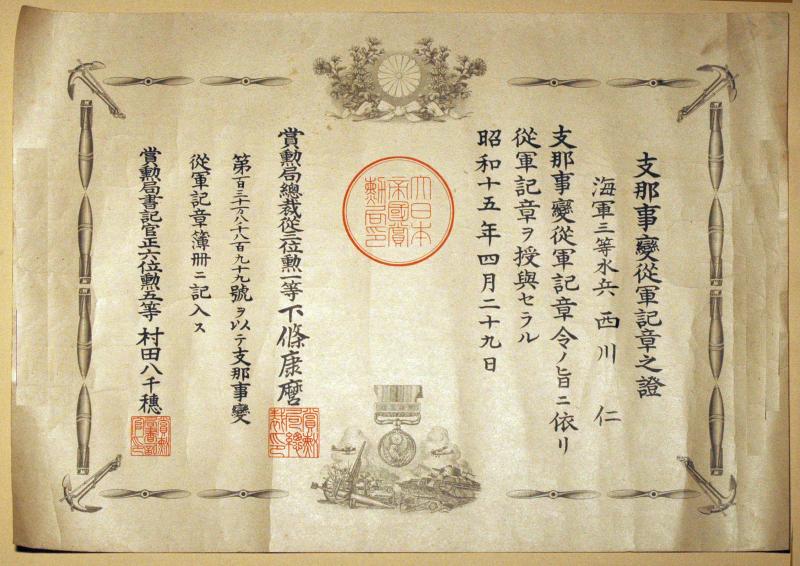 支那事變從軍記章之證
海軍三等水兵 西川 仁
支那事變從軍記章令ノ旨ニ依リ
從軍記章ヲ授與セラル
昭和十五年四月二十九日
大日本
帝國賞
勲局印
賞勲局總裁從三位勲一等下條康麿
第百三十万八千八百九十九號ヲ以テ支那事變
從軍記章簿册ニ記入ス
賞勲局書記官正六位勲五等 村田八千穗
賞勲
局總
裁印